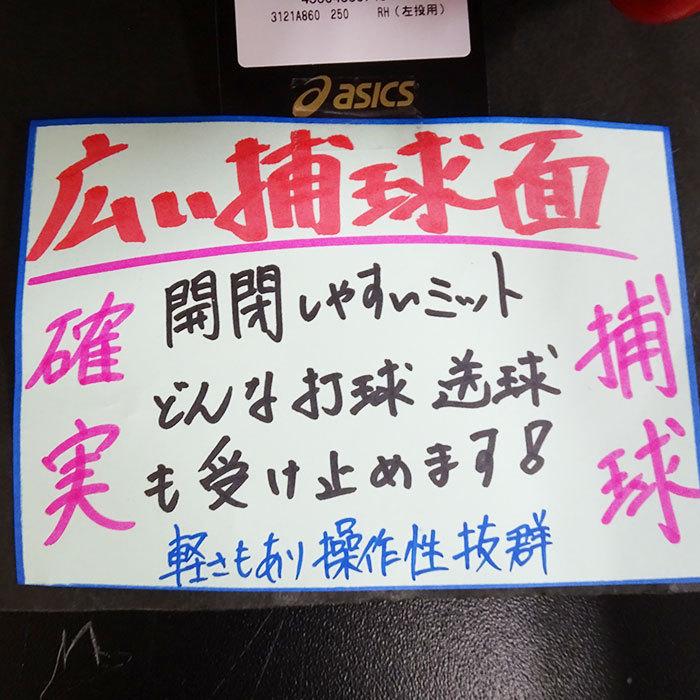 3121A860 250 RH(左投用)
asics
広い捕球面
確実
開閉しやすいミット
どんな打球 送球
も受け止めます!
軽さもあり操作性抜群
捕球